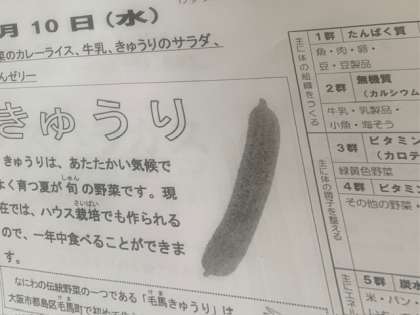 月10日（水）
菜のカレーライス、牛乳、きゅうりのサラダ、
んゼリー
きゅうり
きゅうりは、あたたかい気候で
よく育つ夏が旬の野菜です。現
しゅん
在では、ハウス栽培でも作られる
さいばい
ので、一年中食べることができま
す。
なにわの伝統野菜の一つである「毛馬きゅうり」は
けま
大阪市都島区毛馬町で初めて
けま
主に体の組織をつくる
1群 たんぱく質
魚・肉・卵・
豆・豆製品
2群 無機質
（カルシウム
牛乳・乳製品・
小魚・海そう
主に体の調子を整える
3群 ビタミン
（カロテ
緑黄色野菜
4群 ビタミン
その他の野菜・
主にエネル
5群 炭水
米・パン・